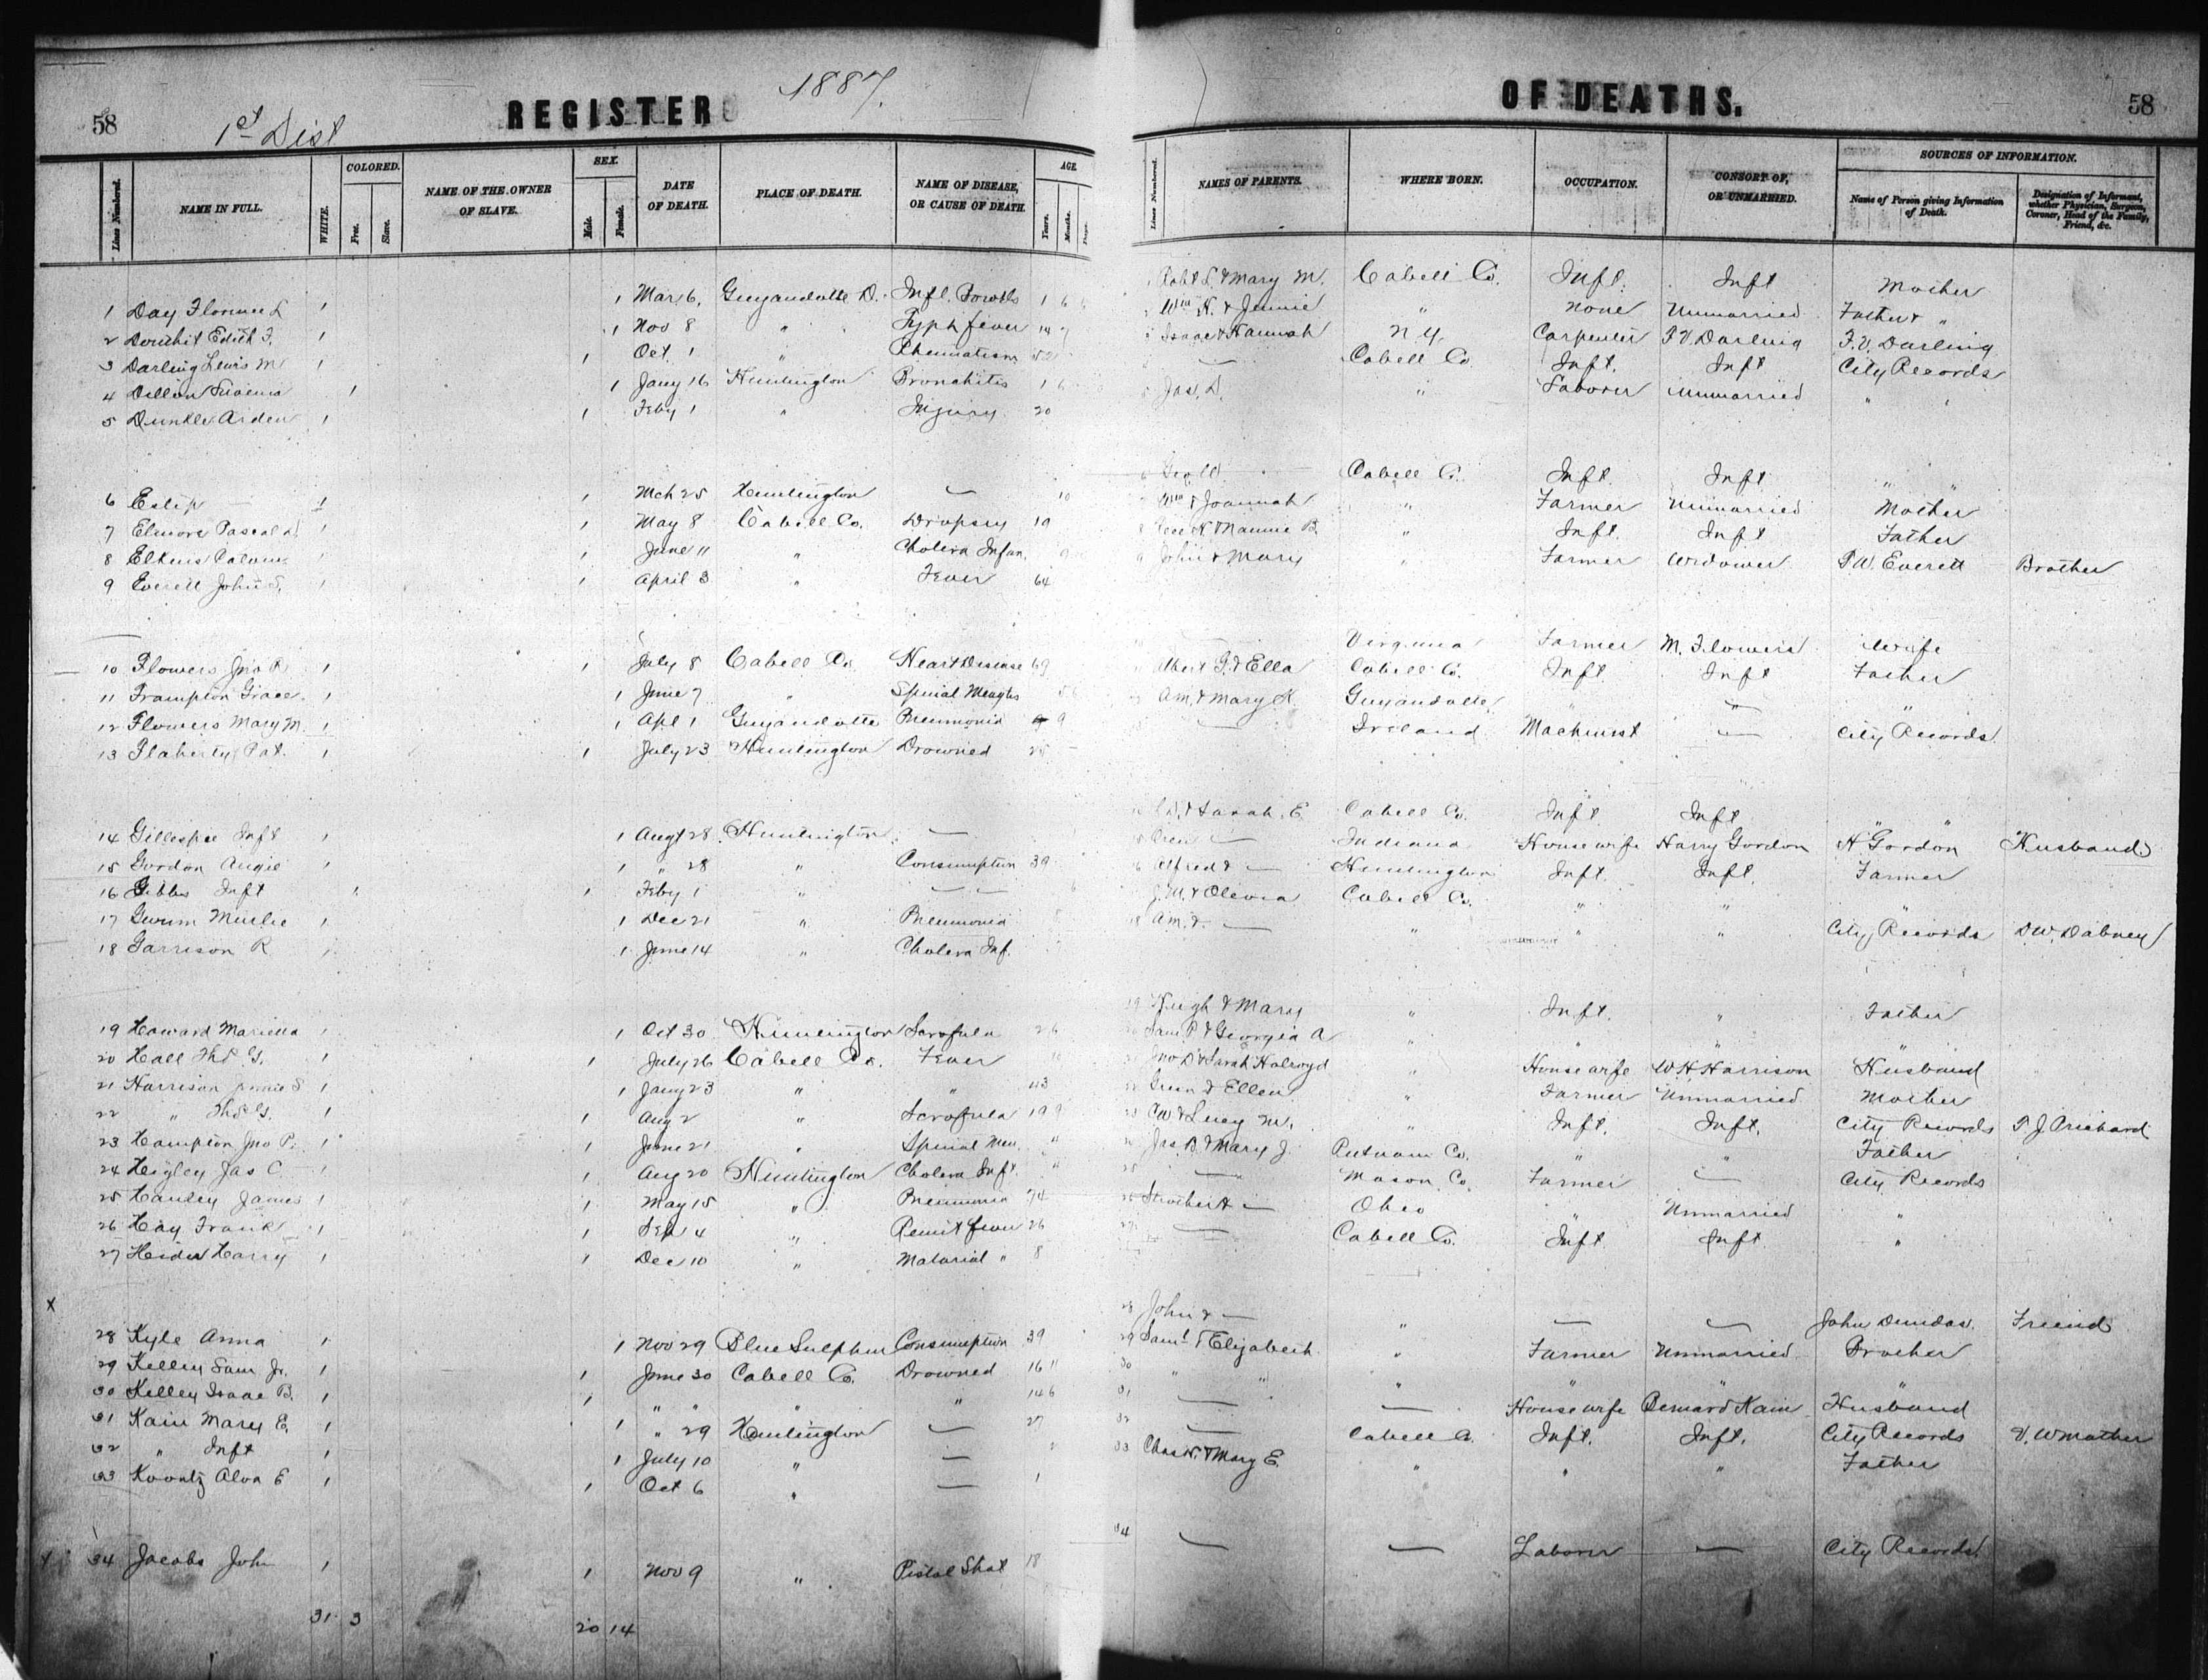 58 1st Dist REGISTER 1887. OF DEATHS. 58
Lines Numbered. NAME IN FULL. WHITE. COLORED. Free. Slave. NAME OF THE OWNER OF SLAVE. SEX. Male. Female. DATE OF DEATH. PLACE OF DEATH. NAME OF DISEASE, OR CAUSE OF DEATH. AGE Years. Months. Days. Lines Numbered. NAMES OF PARENTS. WHERE BORN. OCCUPATION. CONSORT OF, OR UNMARRIED. SOURCES OF INFORMATION. Name of Person giving Information of Death. Designation of Informant, whether Physician, Surgeon, Coroner, Head of the Family, Friend, &c.
1 Day Florence L 1 1 Mar 6, Guyandotte D. Infl. Bowels 1 6 Robt L. & Mary M. Cabell Co. Inft. Inft Mother
2 Douthit Edith F. 1 1 Nov 8 " Typh fever 14 Wm H. & Jennie " None Unmarried Father & "
3 Darling Lewis M 1 1 Oct. 1 " Rheumatism 52 Isaac & Hannah N Y. Carpenter F V Darling F. V. Darling
4 Dillon 1 1 Jany 16 Huntington Bronchitis 1 6 — Cabell Co Inft. Inft City Records
5 Dunkle Arden 1 1 Feby 1 " Injury 20 Jas. D. " Laborer Unmarried " "
6 Estep — 1 1 Mch 25 Huntington — 10 Geo W. Cabell Co. Inft. Inft " "
7 Elmore Pascal 1 1 May 8 Cabell Co. Dropsy 19 Wm & Joannah " Farmer Unmarried Mother
8 Elkins 1 1 June 11 " Cholera Infan. 9 Geo H. & Mamie B. " Inft. Inft Father
9 Everett John S. 1 1 April 3 " Fever 64 John & Mary " Farmer Widower P. W. Everett Brother
10 Flowers Jno R 1 1 July 8 Cabell Co Heart Disease 69 — Virginia Farmer M. Flowers Wife
11 Frampton Grace 1 1 June 7 " Spinal Menghs 5 Albert G. & Ella Cabell Co. Inft. Inft Father
12 Flowers Mary M. 1 1 Apl 1 Guyandotte Pneumonia 9 Am. & Mary K. Guyandotte " "
13 Flaherty Pat. 1 1 July 23 Huntington Drowned 25 — Ireland Machinist — City Records.
14 Gillespie Inft 1 1 Augt 28 Huntington — & Sarah. E. Cabell Co. Inft. Inft " "
15 Gordon Angie 1 1 " 28 " Consumption 39 — Indiana Housewife Harry Gordon H Gordon Husband
16 Gibbs Inft 1 1 Feby 1 " — — 6 Alfred & — Huntington Inft. Inft. Farmer
17 Gwinn 1 1 Dec 21 " Pneumonia J. M. & Olevia Cabell Co. " " "
18 Garrison R 1 1 June 14 " Cholera Inf. 18 Am. & — " " " City Records D. W. Dabney
19 Howard Mariella 1 1 Oct 30 Huntington Scrofula 2 6 19 Hugh & Mary " Inft. " Father
20 Hall Thos G. 1 1 July 26 Cabell Co. Fever 10 Sam P & Georgia A " " " "
21 Harrison Jennie S 1 1 Jany 23 " " 43 Jno D & Sarah Holroyd " Housewife W H Harrison Husband
22 " Thos G. 1 1 Aug 2 " Scrofula 19 9 Green & Ellen " Farmer Unmarried Mother
23 Hampton Jno P. 1 1 June 21 " Spinal Men. " & Lucy M. " Inft. Inft. City Records P. J Prichard
24 Higley Jas C. 1 1 Aug 20 Huntington Cholera Inft. " Jas. B. & Mary J. Putnam Co. " " Father
25 Hanley James 1 1 May 15 " Pneumonia 74 25 — Mason Co. Farmer — City Records
26 Hay Frank 1 1 Sep 4 " Remit fever 26 — Ohio " Unmarried "
27 Heider Harry 1 1 Dec 10 " Malarial " 8 27 — Cabell Co. Inft Inft "
x
28 Kyle Anna 1 1 Nov 29 Blue Sulphur Consumption 39 28 John & — " — — John Dundas. Friend
29 Kelley Sam Jr. 1 1 June 30 Cabell Co. Drowned 16 11 29 Saml & Elizabeth " Farmer Unmarried Brother
30 Kelley Isaac B. 1 1 " " " " 14 6 30 " " " " " "
31 Kain Mary E. 1 1 " 29 Huntington — 27 31 — — Housewife Bernard Kain Husband
32 " Inft 1 1 July 10 " — 32 — Cabell Co. Inft. Inft. City Records V. W Mather
33 Koontz Alva E 1 1 Oct 6 " — 1 33 Chas W. & Mary E. " " " Father
x 34 Jacobs John 1 1 Nov 9 " Pistol Shot 18 34 — — Laborer — City Records.
31 3 20 14